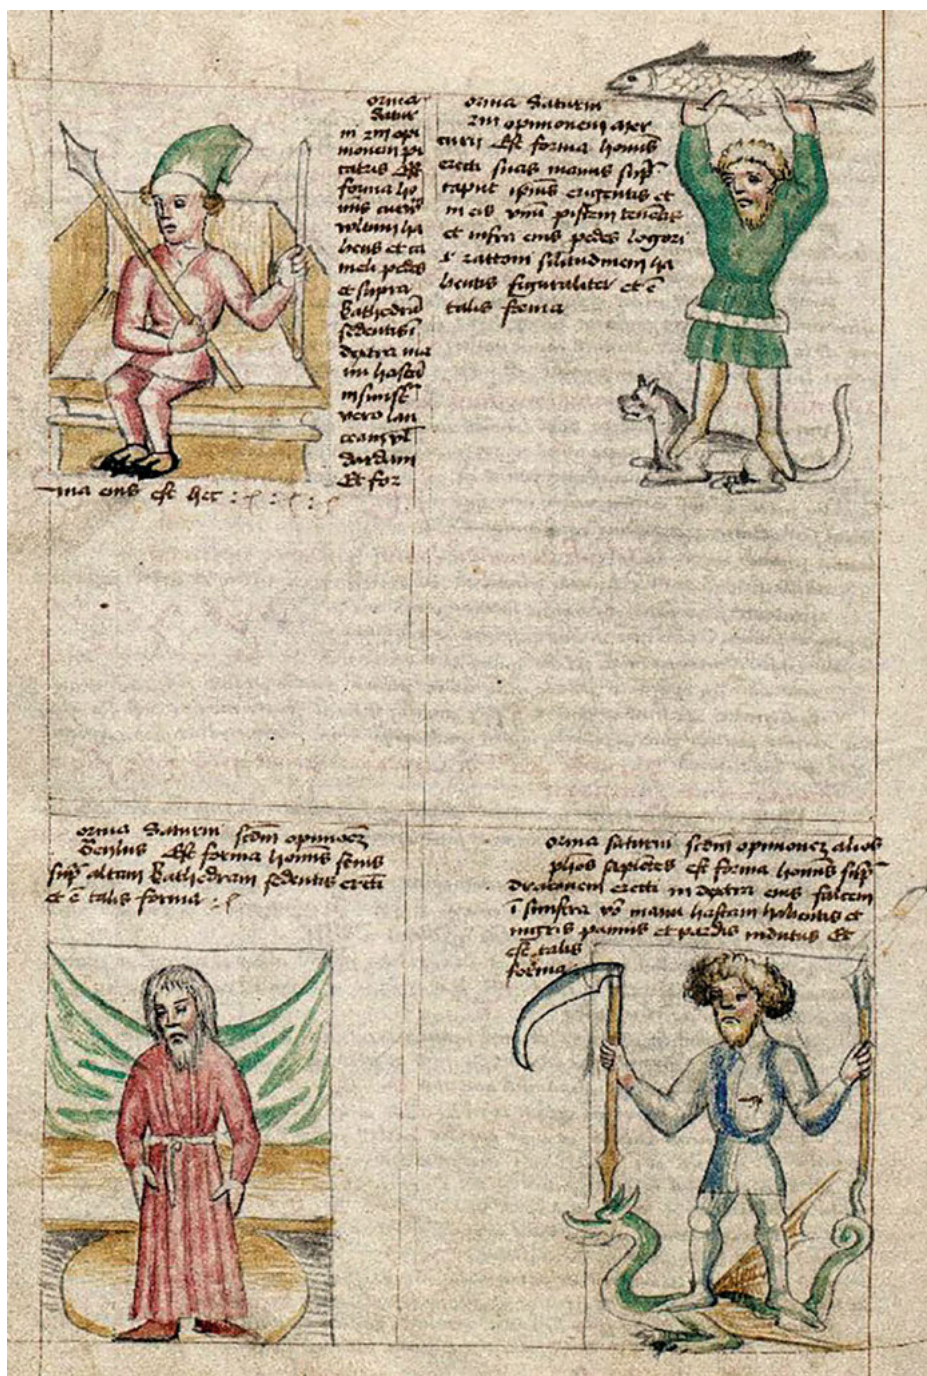 orma
Satur
ni zm opi
monem pi
catris Est
forma ho
mis curvi
voltum ha
bens et ca
meli pedes
et supra
kathedra
sedentis i
dextra ma
nu hasta
insinist
vero lan
ceam vl
dardum
Et for
ma eius est hec
orma Saturni
zm opinionem mer
curii Est forma homis
erecti suas manus sup
caput ipius erigentis et
in eis vnu piscem tenetis
et infra eius pedes
habentis figuraliter et e
talis forma
orma Saturni scdm opinioez
Est forma homis senis
sup altam kathedram sedentis erecti
et e talis forma
orma saturni scdm opinionez alior
sapietes est forma homis sup
draconem erecti in dextra eius falcem
i sinistra vo manu hastam habentis et
nigris pannis et pardis indutus Et
est talis
forma